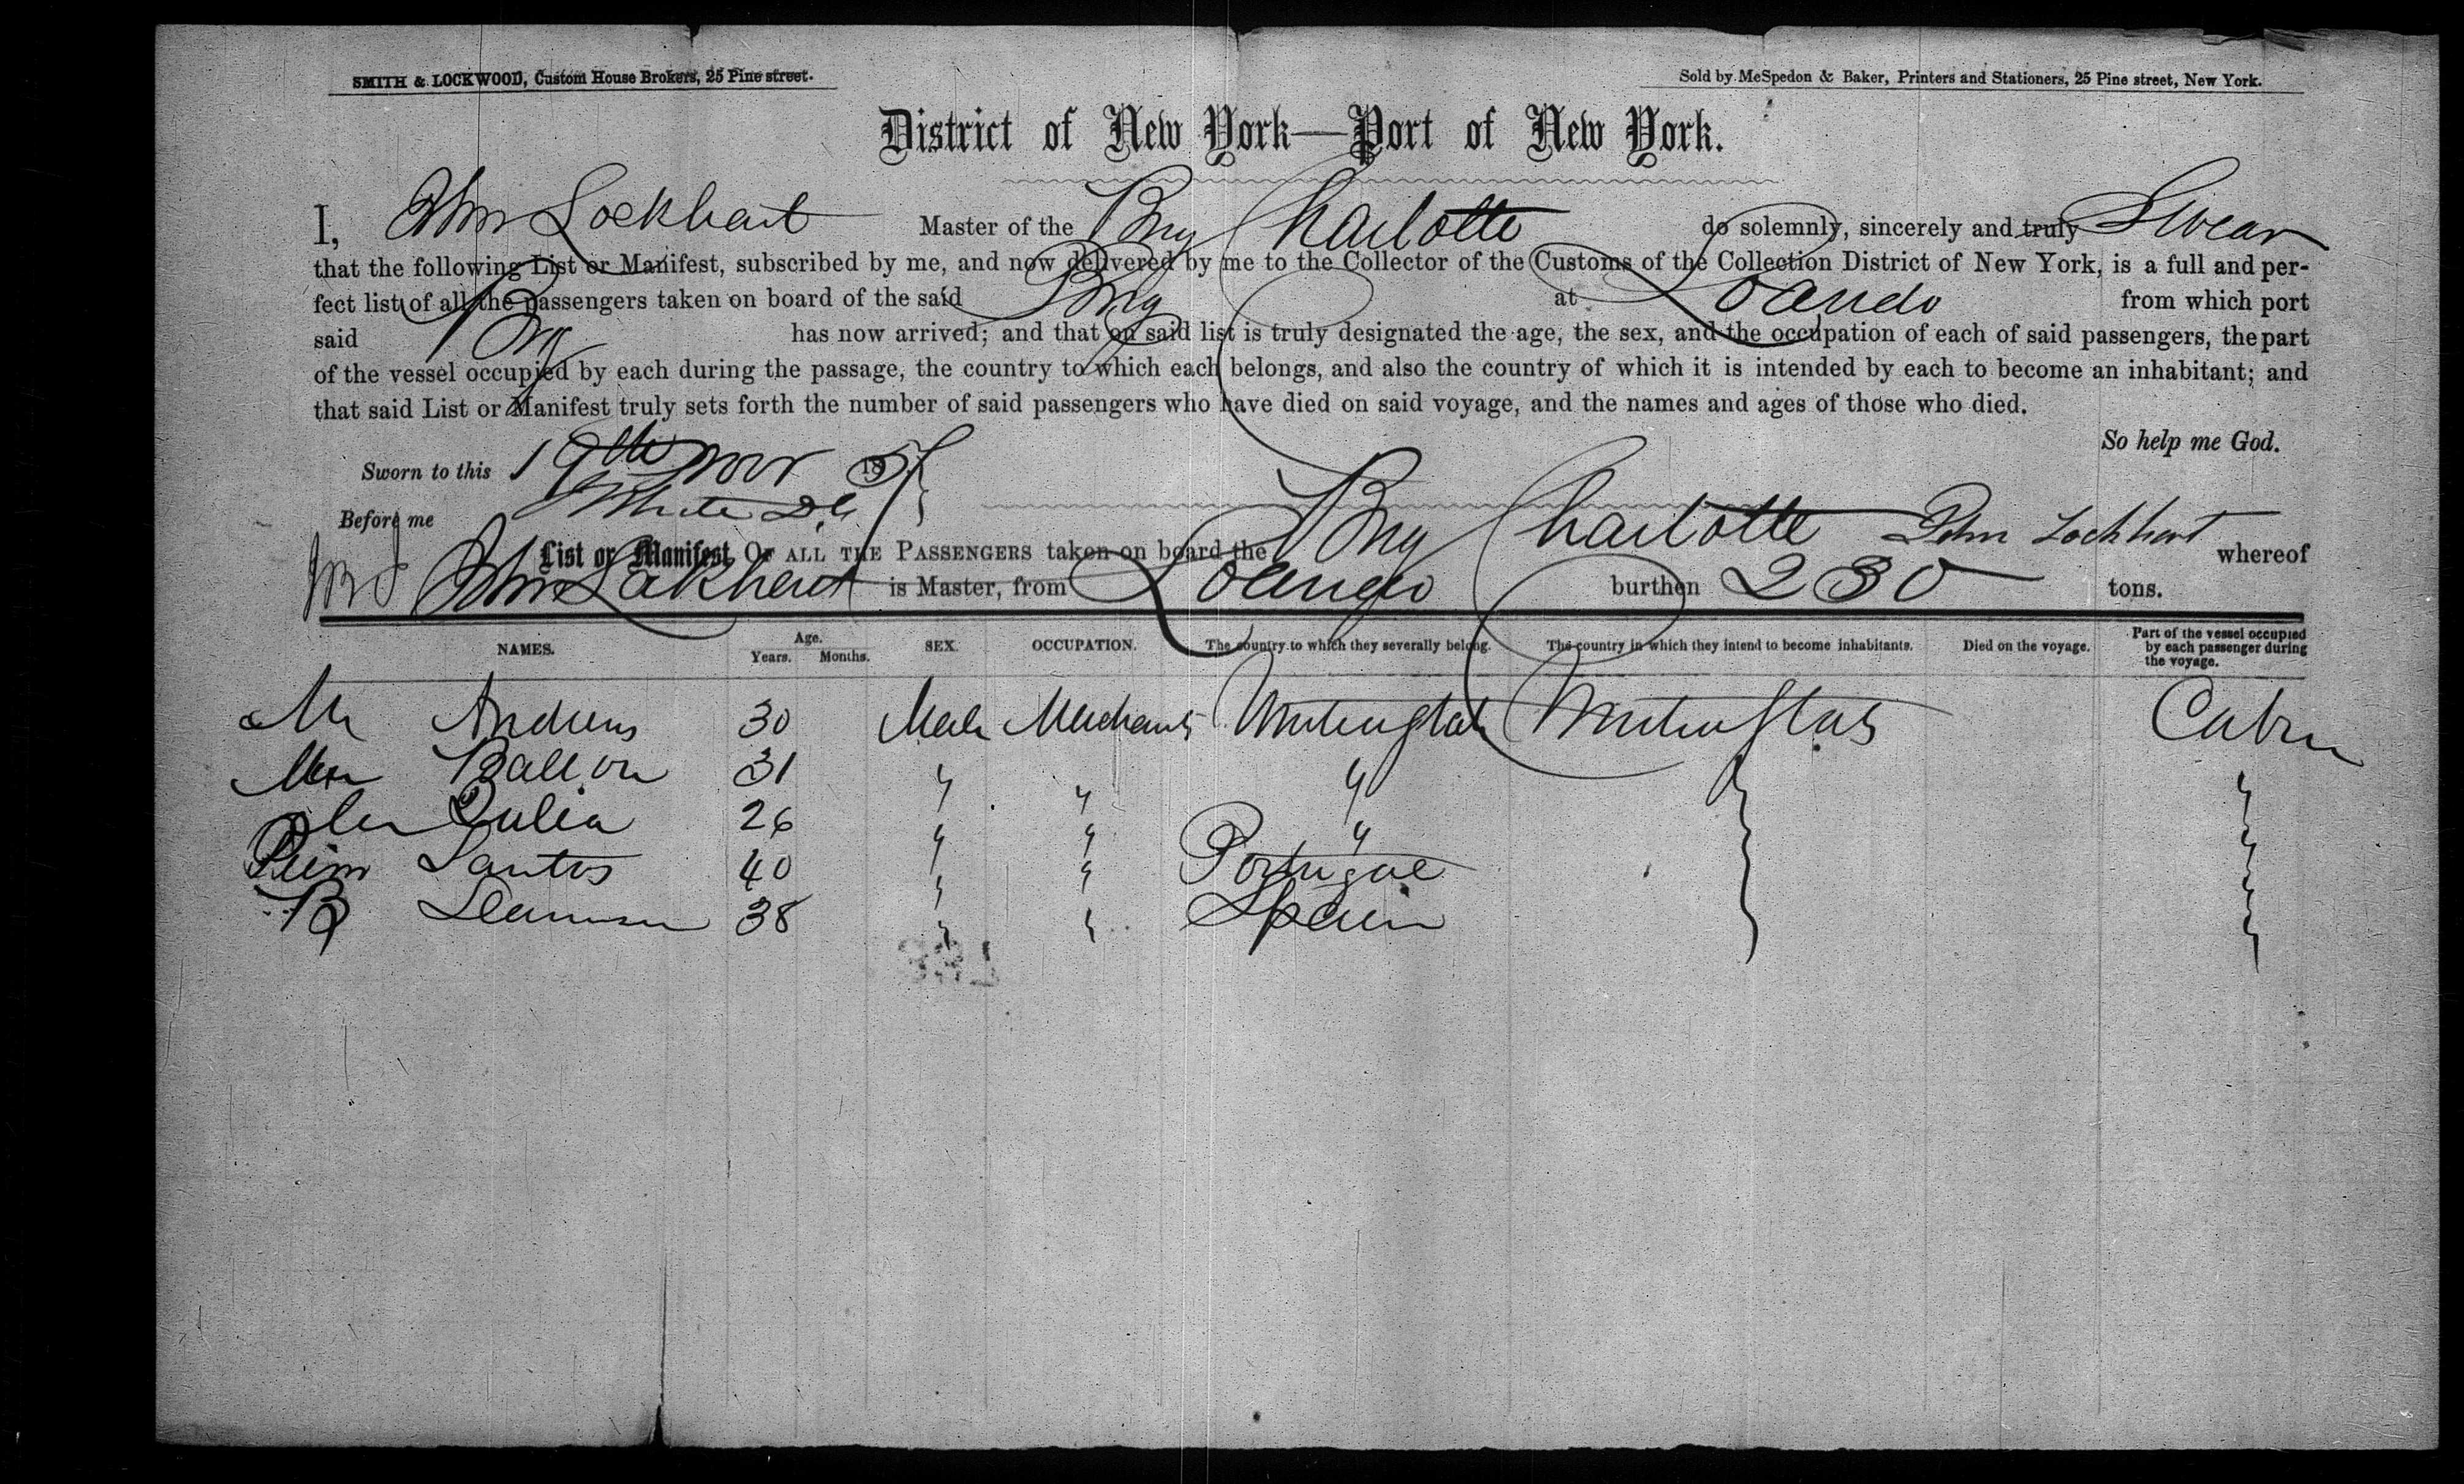 SMITH & LOCKWOOD, Custom House Brokers, 25 Pine street.
Sold by McSpedon & Baker, Printers and Stationers, 25 Pine street, New York.
District of New York—Port of New York.
I, John Lockhart Master of the Brig Charlotte do solemnly, sincerely and truly Swear
that the following List or Manifest, subscribed by me, and now delivered by me to the Collector of the Customs of the Collection District of New York, is a full and per-
fect list of all the passengers taken on board of the said Brig at Loando from which port
said Brig has now arrived; and that on said list is truly designated the age, the sex, and the occupation of each of said passengers, the part
of the vessel occupied by each during the passage, the country to which each belongs, and also the country of which it is intended by each to become an inhabitant; and
that said List or Manifest truly sets forth the number of said passengers who have died on said voyage, and the names and ages of those who died.
So help me God.
Sworn to this 19th Nov 185
Before me White
List or Manifest OF ALL THE PASSENGERS taken on board the Brig Charlotte John Lockhart whereof
John Lockhart is Master, from Loango burthen 230 tons.
NAMES. Age. Years. Months. SEX. OCCUPATION. The country to which they severally belong. The country in which they intend to become inhabitants. Died on the voyage. Part of the vessel occupied by each passenger during the voyage.
Mr Andrews 30 Male Merchants United States United States Cabin
Ballou 31 " " " "
Julia 26 " " " "
Santos 40 " " Portugal "
B 38 " " Spain "